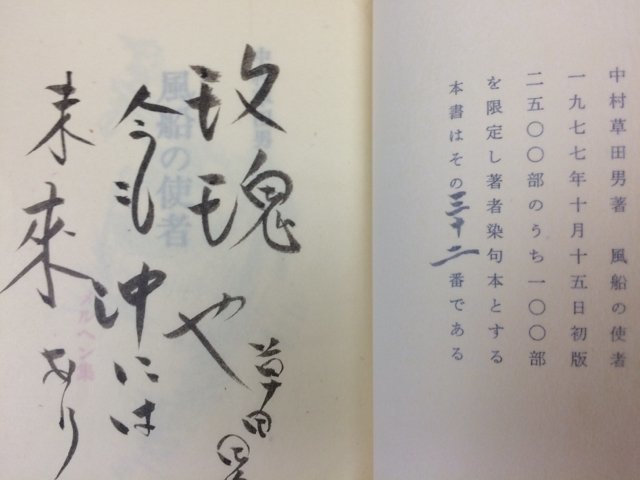 中村草田男著　風船の使者
一九七七年十月十五日初版
二五〇〇部のうち一〇〇部
を限定し著者染句本とする
本書はその三十二番である
玫瑰や
今も沖には
未来あり
草田男
風船の使者
メルヘン集